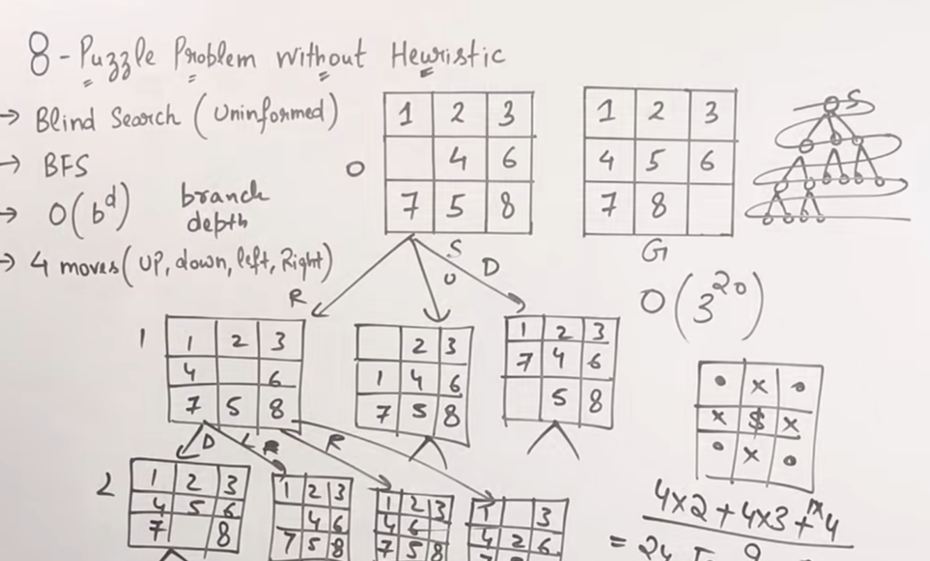 8-Puzzle Problem without Heuristic
→ Blind Search (Uninformed)
→ BFS
→ O(b^d) branch
depth
→ 4 moves (UP, down, left, Right)
0
1 2 3
4 6
7 5 8
S
1 2 3
4 5 6
7 8
G
S
O(3^20)
R U D
1
1 2 3
4 6
7 5 8
2 3
1 4 6
7 5 8
1 2 3
7 4 6
5 8
D L R
2
1 2 3
4 5 6
7 8
1 2 3
4 6
7 5 8
1 2 3
4 6
7 5 8
1 3
4 2 6
• x •
x $ x
• x •
4x2 + 4x3 + 1x4
= 24
9